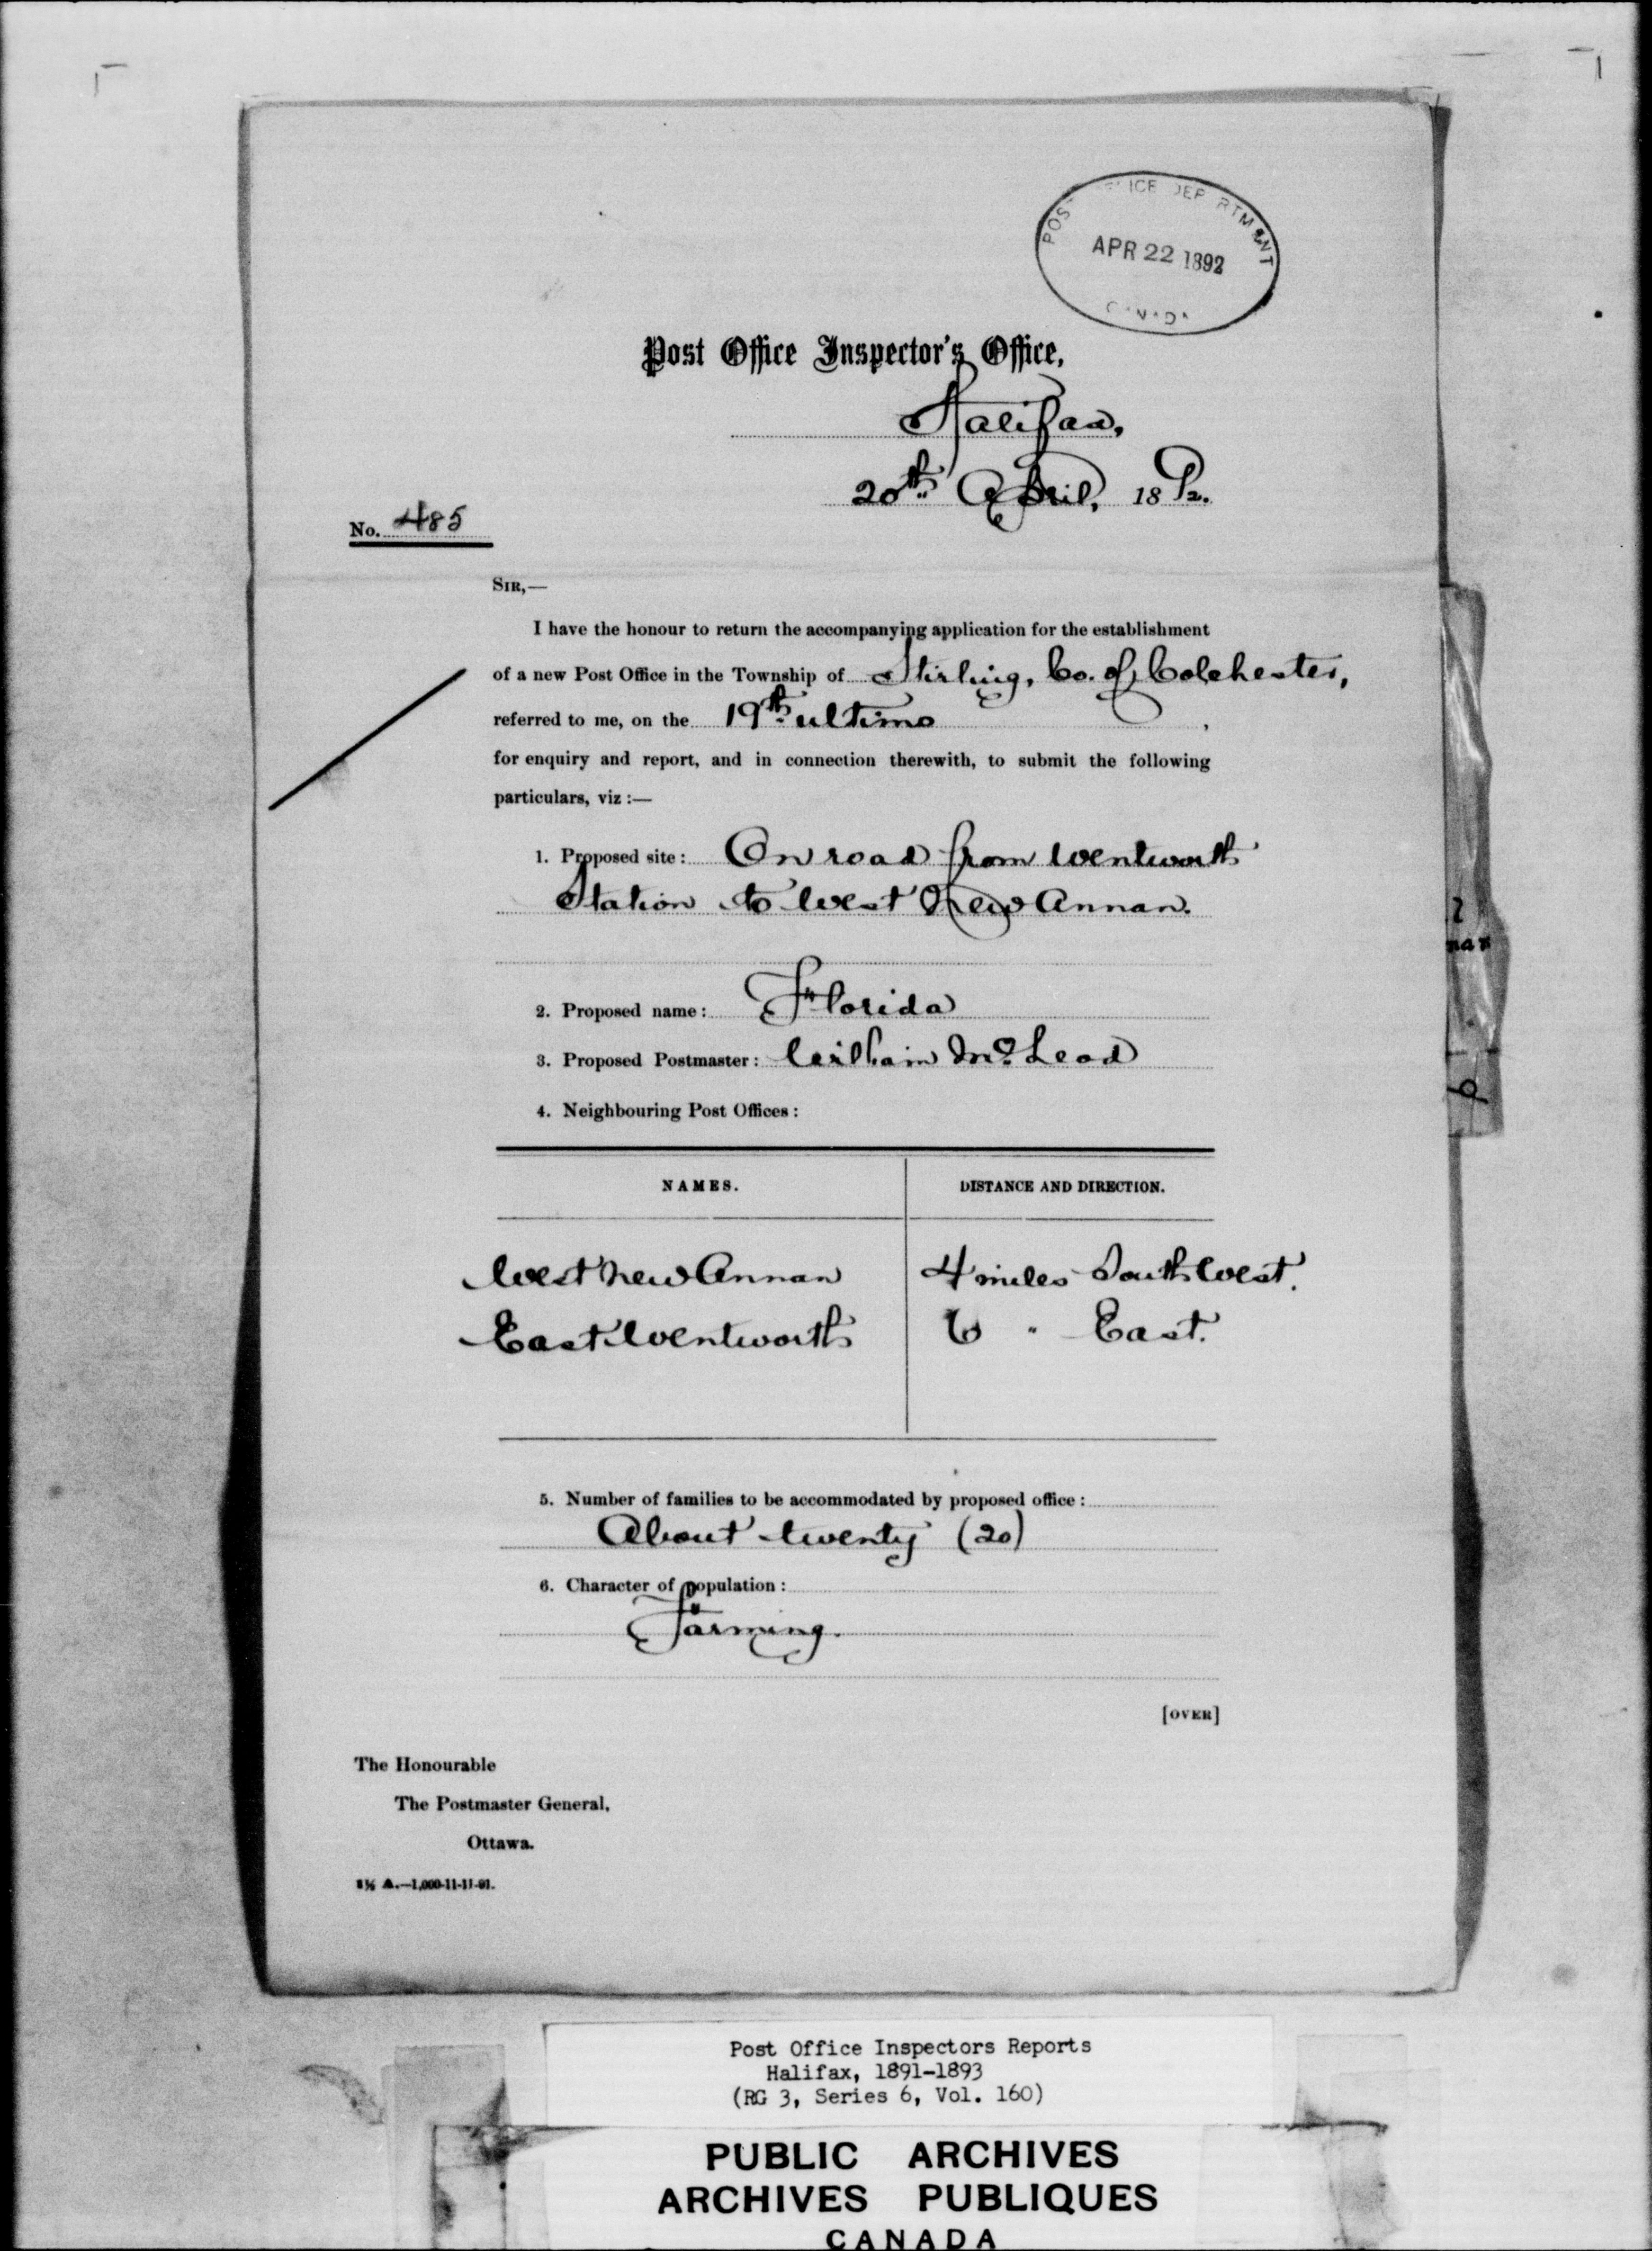 POST OFFICE DEPARTMENT
APR 22 1892
CANADA
Post Office Inspector's Office,
Halifax,
20th April, 1892.
No. 485
SIR,—
I have the honour to return the accompanying application for the establishment
of a new Post Office in the Township of Stirling, Co. of Colchester,
referred to me, on the 19th ultimo,
for enquiry and report, and in connection therewith, to submit the following
particulars, viz :—
1. Proposed site: On road from Wentworth
Station to West New Annan.
2. Proposed name: Florida
3. Proposed Postmaster: William McLeod
4. Neighbouring Post Offices:
NAMES. DISTANCE AND DIRECTION.
West New Annan 4 miles South West.
East Wentworth 6 " East.
5. Number of families to be accommodated by proposed office:
About twenty (20)
6. Character of population:
Farming.
[OVER]
The Honourable
The Postmaster General,
Ottawa.
A.—1,000-11-11-91.
Post Office Inspectors Reports
Halifax, 1891-1893
(RG 3, Series 6, Vol. 160)
PUBLIC ARCHIVES
ARCHIVES PUBLIQUES
CANADA